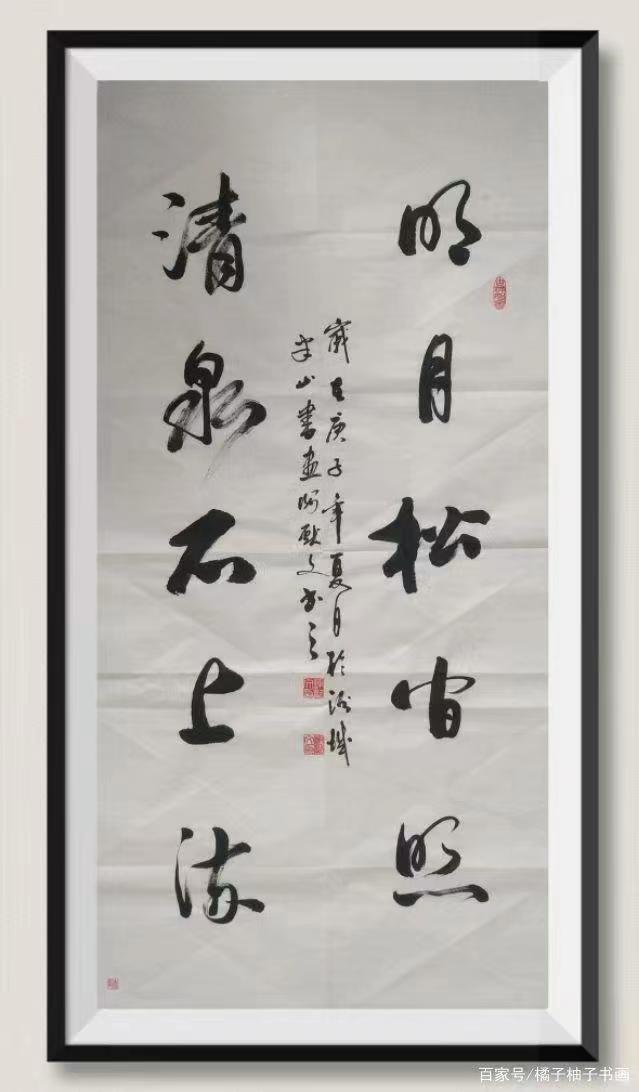 明月松间照
清泉石上流
岁在庚子年夏月於
半山书画
文书之
百家号/橘子柚子书画